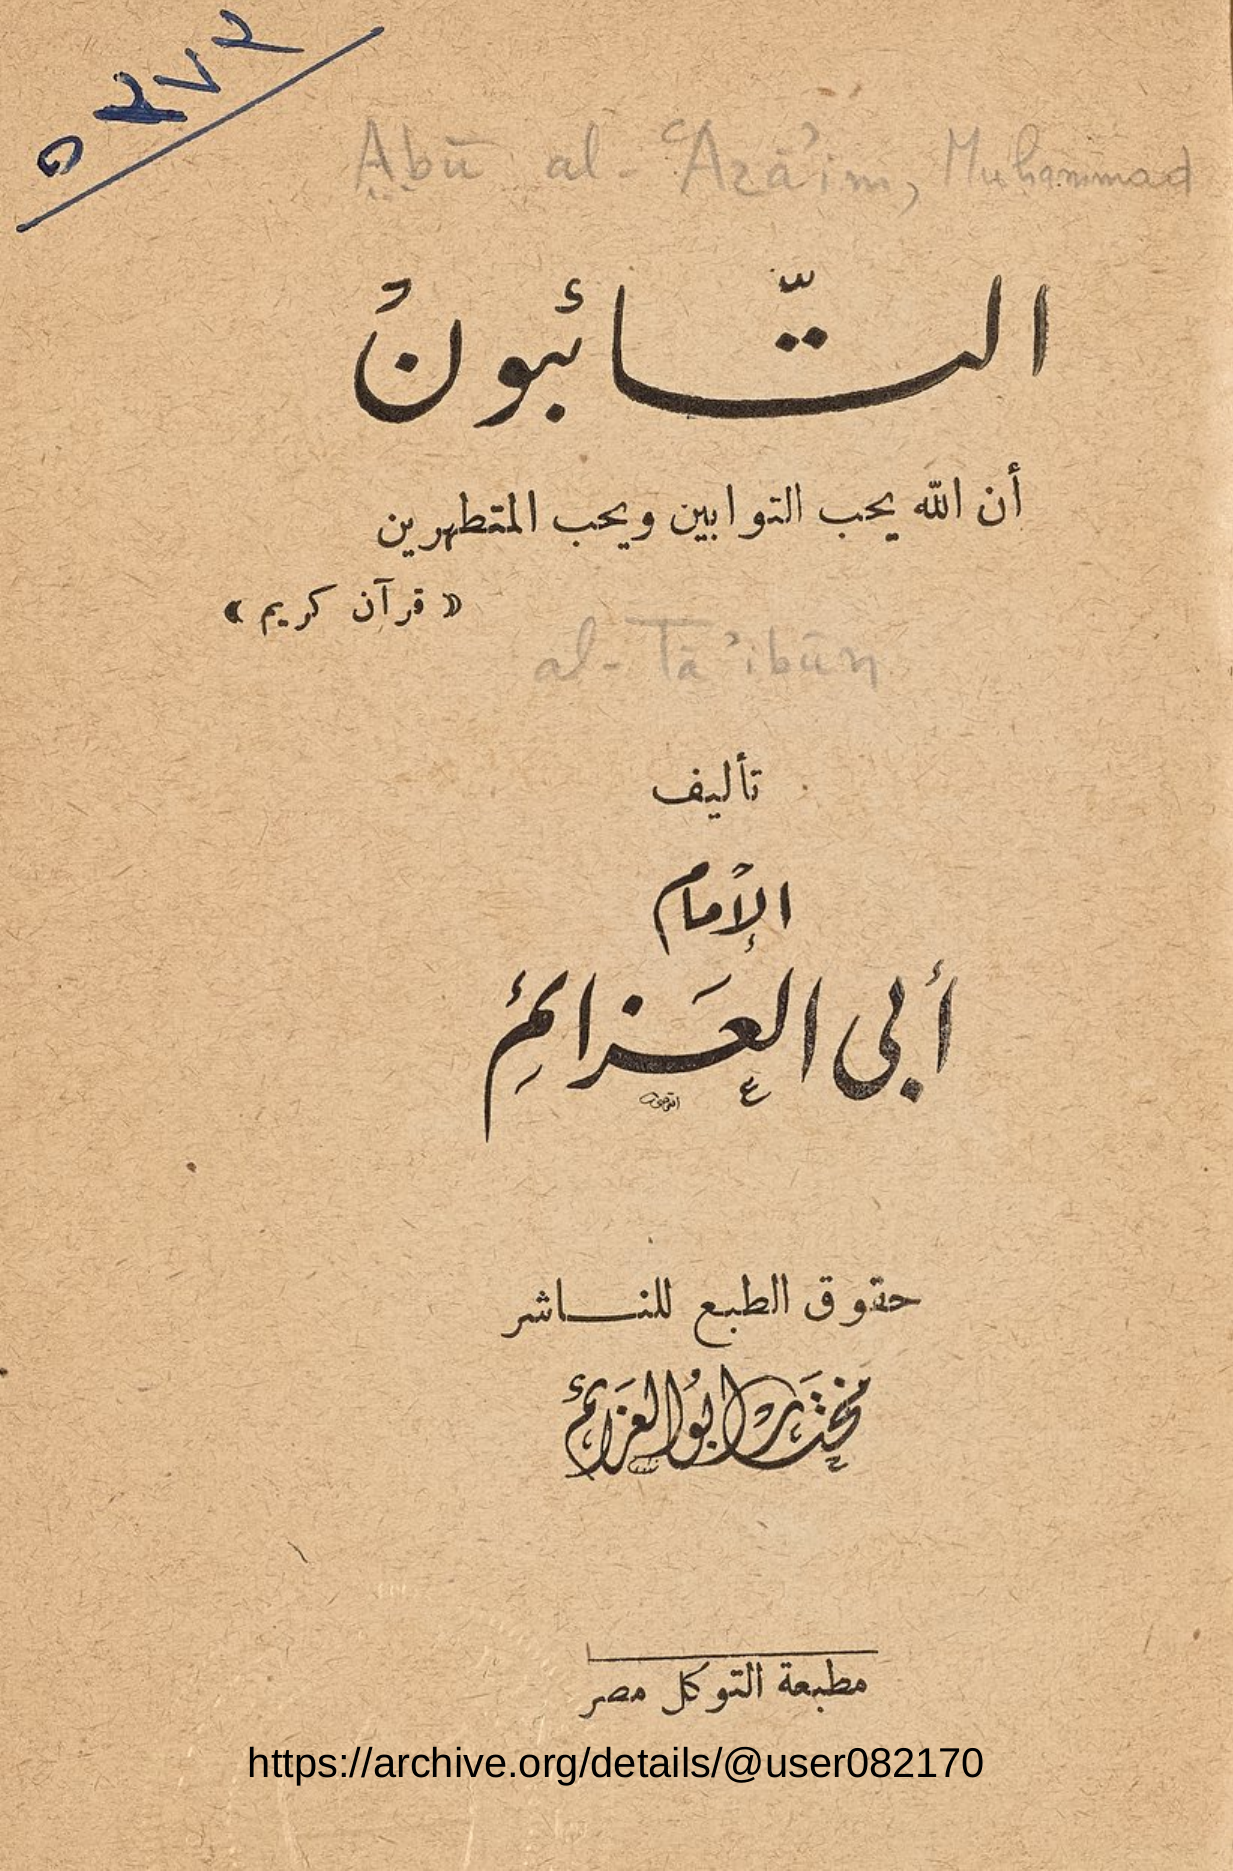 Abū al-ʿAzāʾim, Muhammad
التّائبونُ
أن الله يحب التوابين ويحب المتطهرين
« قرآن كريم »
al-Tāʾibūn
تأليف
الإمام
أبى العَزائمِ
حقوق الطبع للناشر
مختار ابوالعزائم
مطبعة التوكل مصر
https://archive.org/details/@user082170